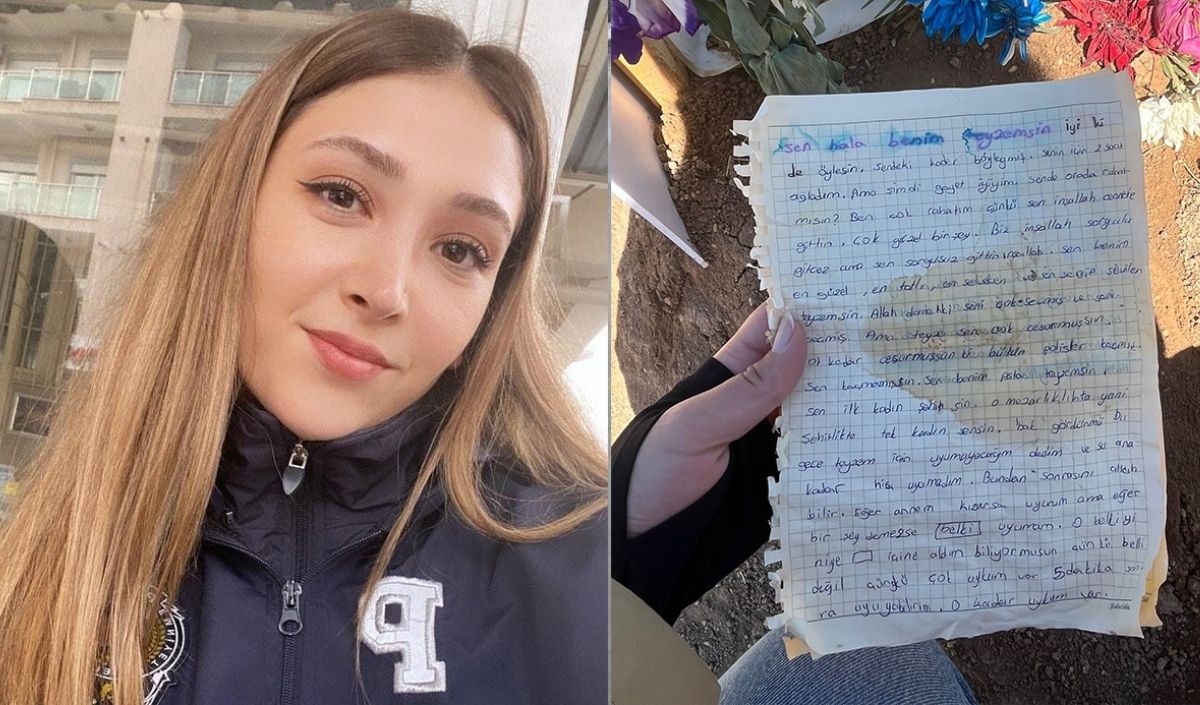 P
sen hala benim teyzemsin iyi ki
de öylesin. Sendeki kader böyleymiş. Senin için 2 saat
ağladım. Ama şimdi gayet iyiyim. Sende orada rahat
mısın? Ben çok rahatım çünkü sen inşallah cennete
gittin. Çok güzel bir şey. Biz inşallah sorgulu
gitcez ama sen sorgusuz gittin inşallah. Sen benim
en güzel, en tatlı, en sevecen ve en sevilen
teyzemsin. Allah demekki seni
seçmiş. Ama teyze sen çok cesurmuşsun,
o kadar cesurmuşsun ki bütün polisler kaçmış.
Sen kaçmamışsın. Sen benim teyzemsin
sen ilk kadın şehitsin. o mezarlıklıkta yani
Şehitlikte tek kadın sensin. bak gördünmü bu
gece teyzem için uyumayacağım dedim ve şu ana
kadar hiç uyumadım. Bundan sonrasını allah
bilir. Eğer annem kızarsa uyurum ama eğer
bir şey demezse belki uyumam. O belkiyi
niye içine aldım biliyormusun çünkü belli
değil çünkü çok uykum var 5 dakika son-
ra uyuyabilirim. O kadar uykum var.